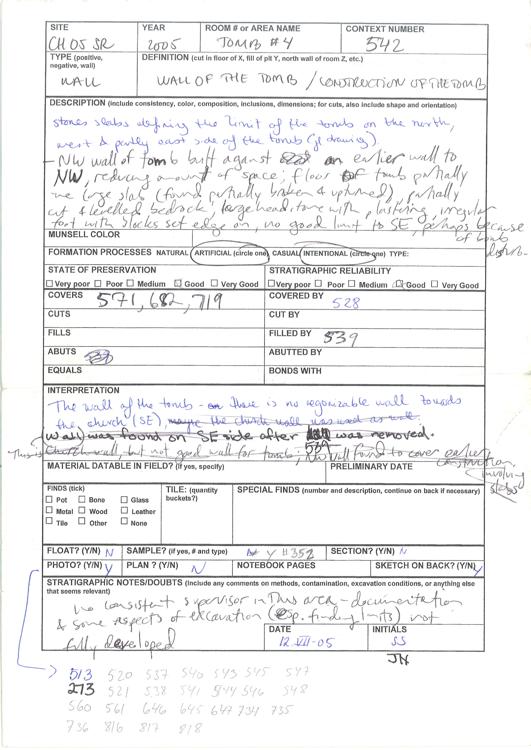 SITE YEAR ROOM # or AREA NAME CONTEXT NUMBER
CH05SR 2005 TOMB #4 542
TYPE (positive, negative, wall) DEFINITION (cut in floor of X, fill of pit Y, north wall of room Z, etc.)
WALL WALL OF THE TOMB / CONSTRUCTION OF THE TOMB
DESCRIPTION (include consistency, color, composition, inclusions, dimensions; for cuts, also include shape and orientation)
stones slabs defining the limit of the tomb on the north,
west & partly east side of the tomb (jt drawing)
- NW wall of tomb built against an earlier wall to
NW, reducing amount of space; floor of tomb partially
one large slab (found partially broken & upturned) partially
cut & levelled bedrock, large headstone with plastering, irregular
foot with blocks set edge on, no good limit to SE, perhaps because
of tomb
MUNSELL COLOR
FORMATION PROCESSES NATURAL ARTIFICIAL (circle one) CASUAL INTENTIONAL (circle one) TYPE:
STATE OF PRESERVATION STRATIGRAPHIC RELIABILITY
Very poor Poor Medium Good Very Good Very poor Poor Medium Good Very Good
COVERS 571, 682, 719 COVERED BY 528
CUTS CUT BY
FILLS FILLED BY 539
ABUTS ABUTTED BY
EQUALS BONDS WITH
INTERPRETATION
The wall of the tomb - there is no regonizable wall towards
the church (SE), maybe the church wall was used as wall.
(Wall) was found on SE side after 539 was removed.
This is church wall, but not good wall for tomb; NW wall found to cover earlier
construction involving slabs
MATERIAL DATABLE IN FIELD? (If yes, specify) PRELIMINARY DATE
FINDS (tick) TILE: (quantity buckets?) SPECIAL FINDS (number and description, continue on back if necessary)
Pot Bone Glass
Metal Wood Leather
Tile Other None
FLOAT? (Y/N) N SAMPLE? (if yes, # and type) Y #352 SECTION? (Y/N) N
PHOTO? (Y/N) Y PLAN ? (Y/N) N NOTEBOOK PAGES SKETCH ON BACK? (Y/N) Y
STRATIGRAPHIC NOTES/DOUBTS (Include any comments on methods, contamination, excavation conditions, or anything else that seems relevant)
no consistent supervisor in this area - documentation
& some aspects of excavation (esp. finding limits) not
fully developed
DATE INITIALS
12-VII-05 SS
JN
513 520 537 540 543 545 547
273 521 538 541 544 546 548
560 561 646 645 647 734 735
736 816 817 818